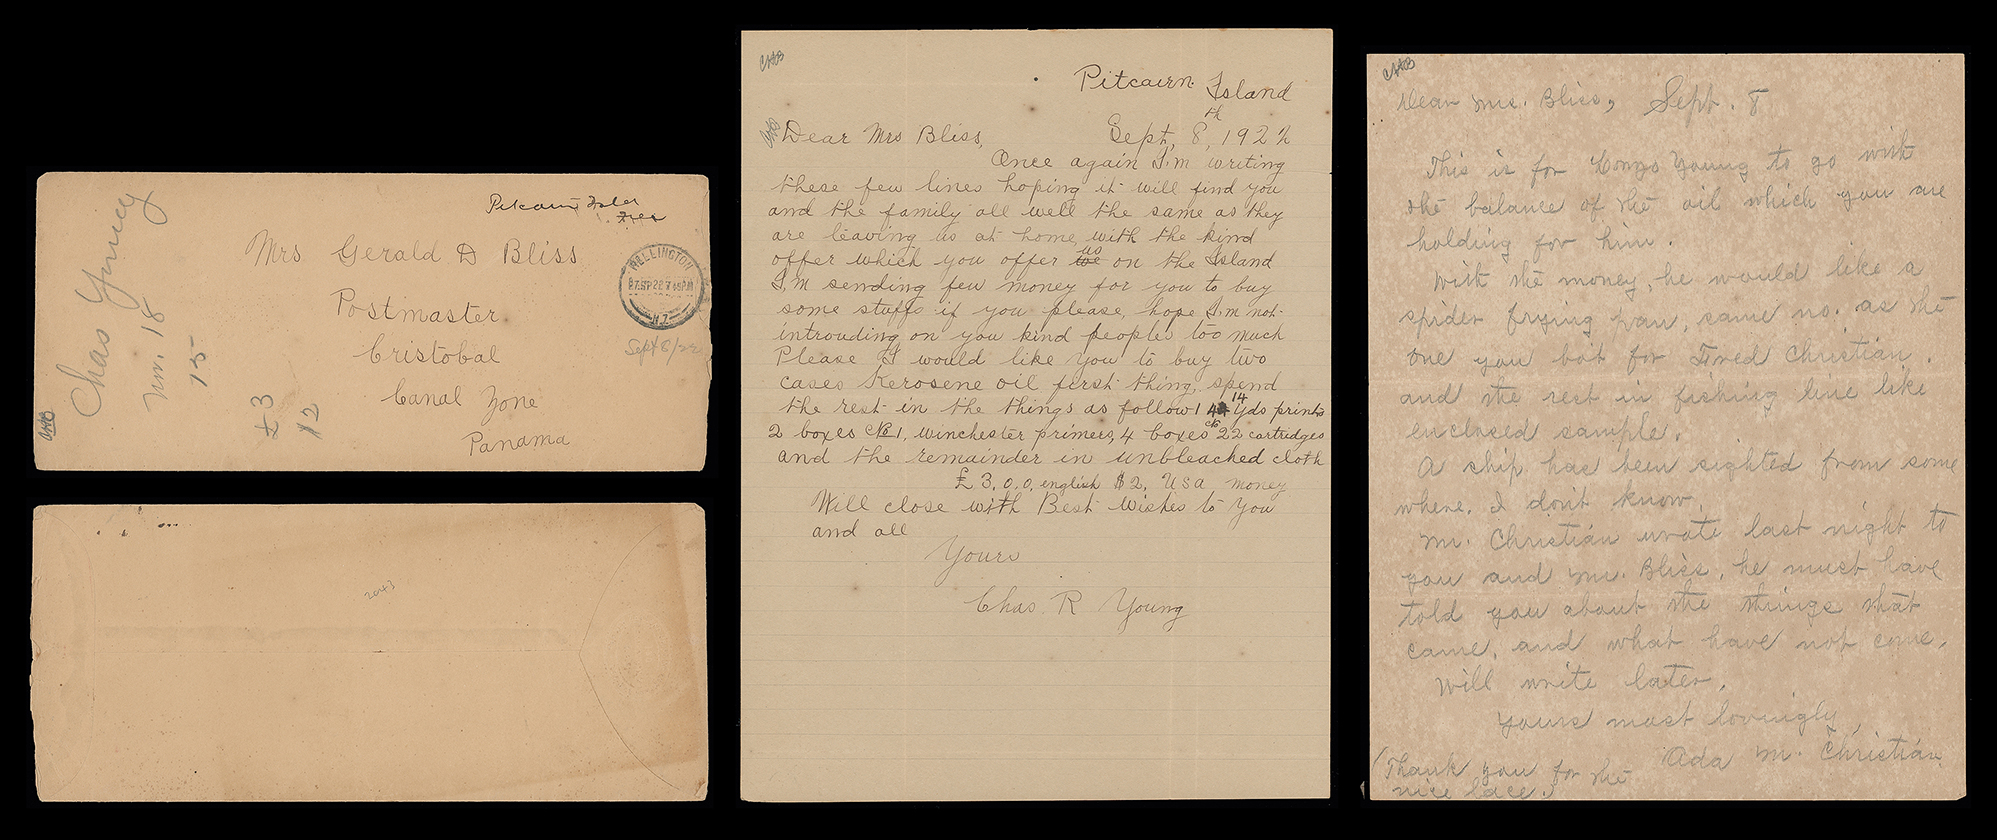 Chas Young
Nm. 18
15
£3
12
Pitcairn Island
Mrs Gerald D Bliss
Postmaster
Cristobal
Canal Zone
Panama
WELLINGTON
27.SP.22.7 45PM
N.Z.
Sept 8/22
2043
CHAS
Pitcairn Island
CHAS
Dear Mrs Bliss, Sept, 8th, 1922
Once again I'm writing
these few lines hoping it will find you
and the family all well the same as they
are leaving us at home, with the kind
offer which you offer us on the Island
I'm sending few money for you to buy
some stuffs if you please, hope I'm not
introuding on you kind peoples too much
Please I would like you to buy two
cases Kerosene oil first thing, spend
the rest in the things as follow 14 yds prints
2 boxes No 1, winchester primers, 4 boxes 22 cartridges
and the remainder in unbleached cloth
£3,0,0, english $2, USA money
Will close with Best Wishes to You
and all
Yours
Chas R Young
CHAS
Dear Mrs. Bliss, Sept. 8
This is for Young to go with
the balance of the oil which you are
holding for him.
With the money, he would like a
spider frying pan, same no. as the
one you bot for Fred Christian.
and the rest in fishing line like
enclosed sample.
A ship has been sighted from some
where, I don't know.
Mr. Christian wrote last night to
you and Mr. Bliss, he must have
told you about the things that
came, and what have not come.
Will write later.
Yours most lovingly,
Ada M. Christian.
(Thank you for the
nice lace.)